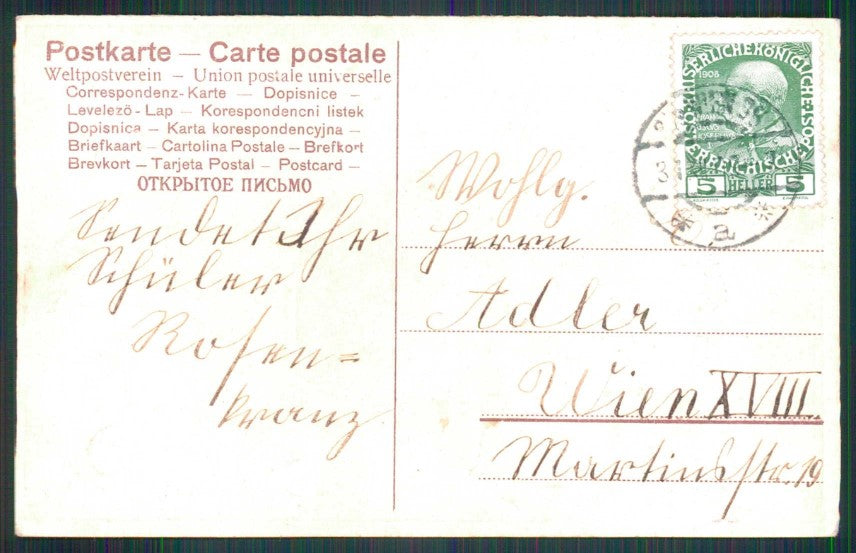 Postkarte — Carte postale
Weltpostverein — Union postale universelle
Correspondenz-Karte — Dopisnice —
Levelező-Lap — Korespondencni listek
Dopisnica — Karta korespondencyjna —
Briefkaart — Cartolina Postale — Brefkort
Brevkort — Tarjeta Postal — Postcard —
ОТКРЫТОЕ ПИСЬМО
Sendet Ihr
Schüler
Rosen=
kranz
1908
5 HELLER 5
Wohlg.
Herrn
Adler
Wien XVIII.
Martinsstr. 19